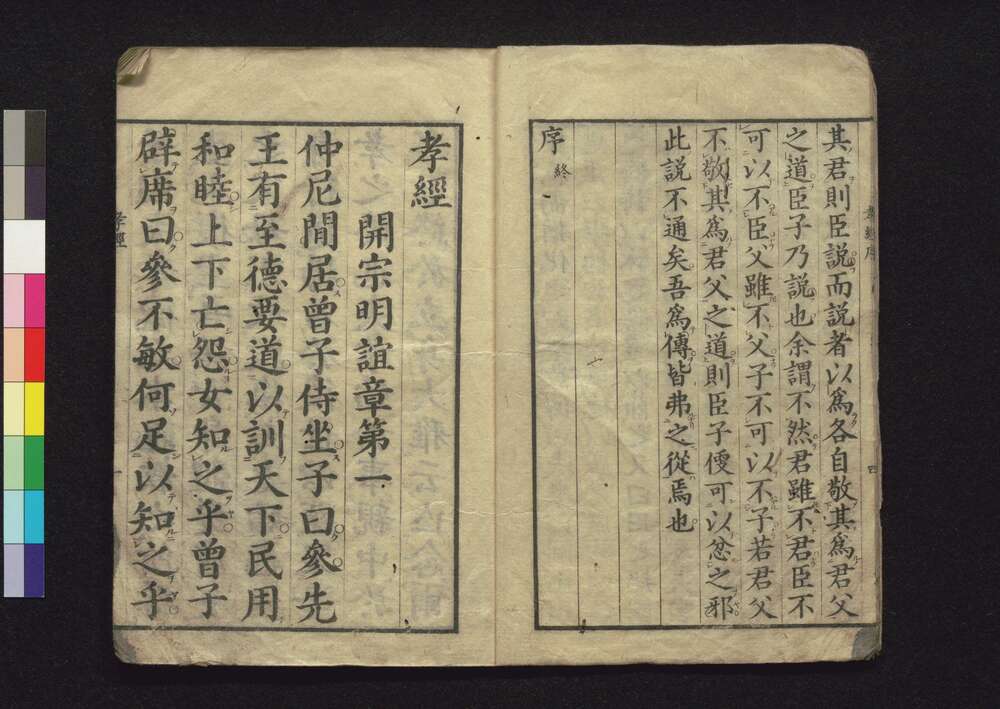 其君則臣説而説者以爲各自敬其爲君父
之道臣子乃説也余謂不然君雖不君臣不
可以不臣父雖不父子不可以不子若君父
不敬其爲君父之道則臣子便可以忿之邪
此説不通矣吾爲傳皆弗之從焉也
序終
孝經
開宗明誼章第一
仲尼閒居曾子侍坐子曰參先
王有至德要道以訓天下民用
和睦上下亡怨女知之乎曾子
辟席曰參不敏何足以知之乎
孝經